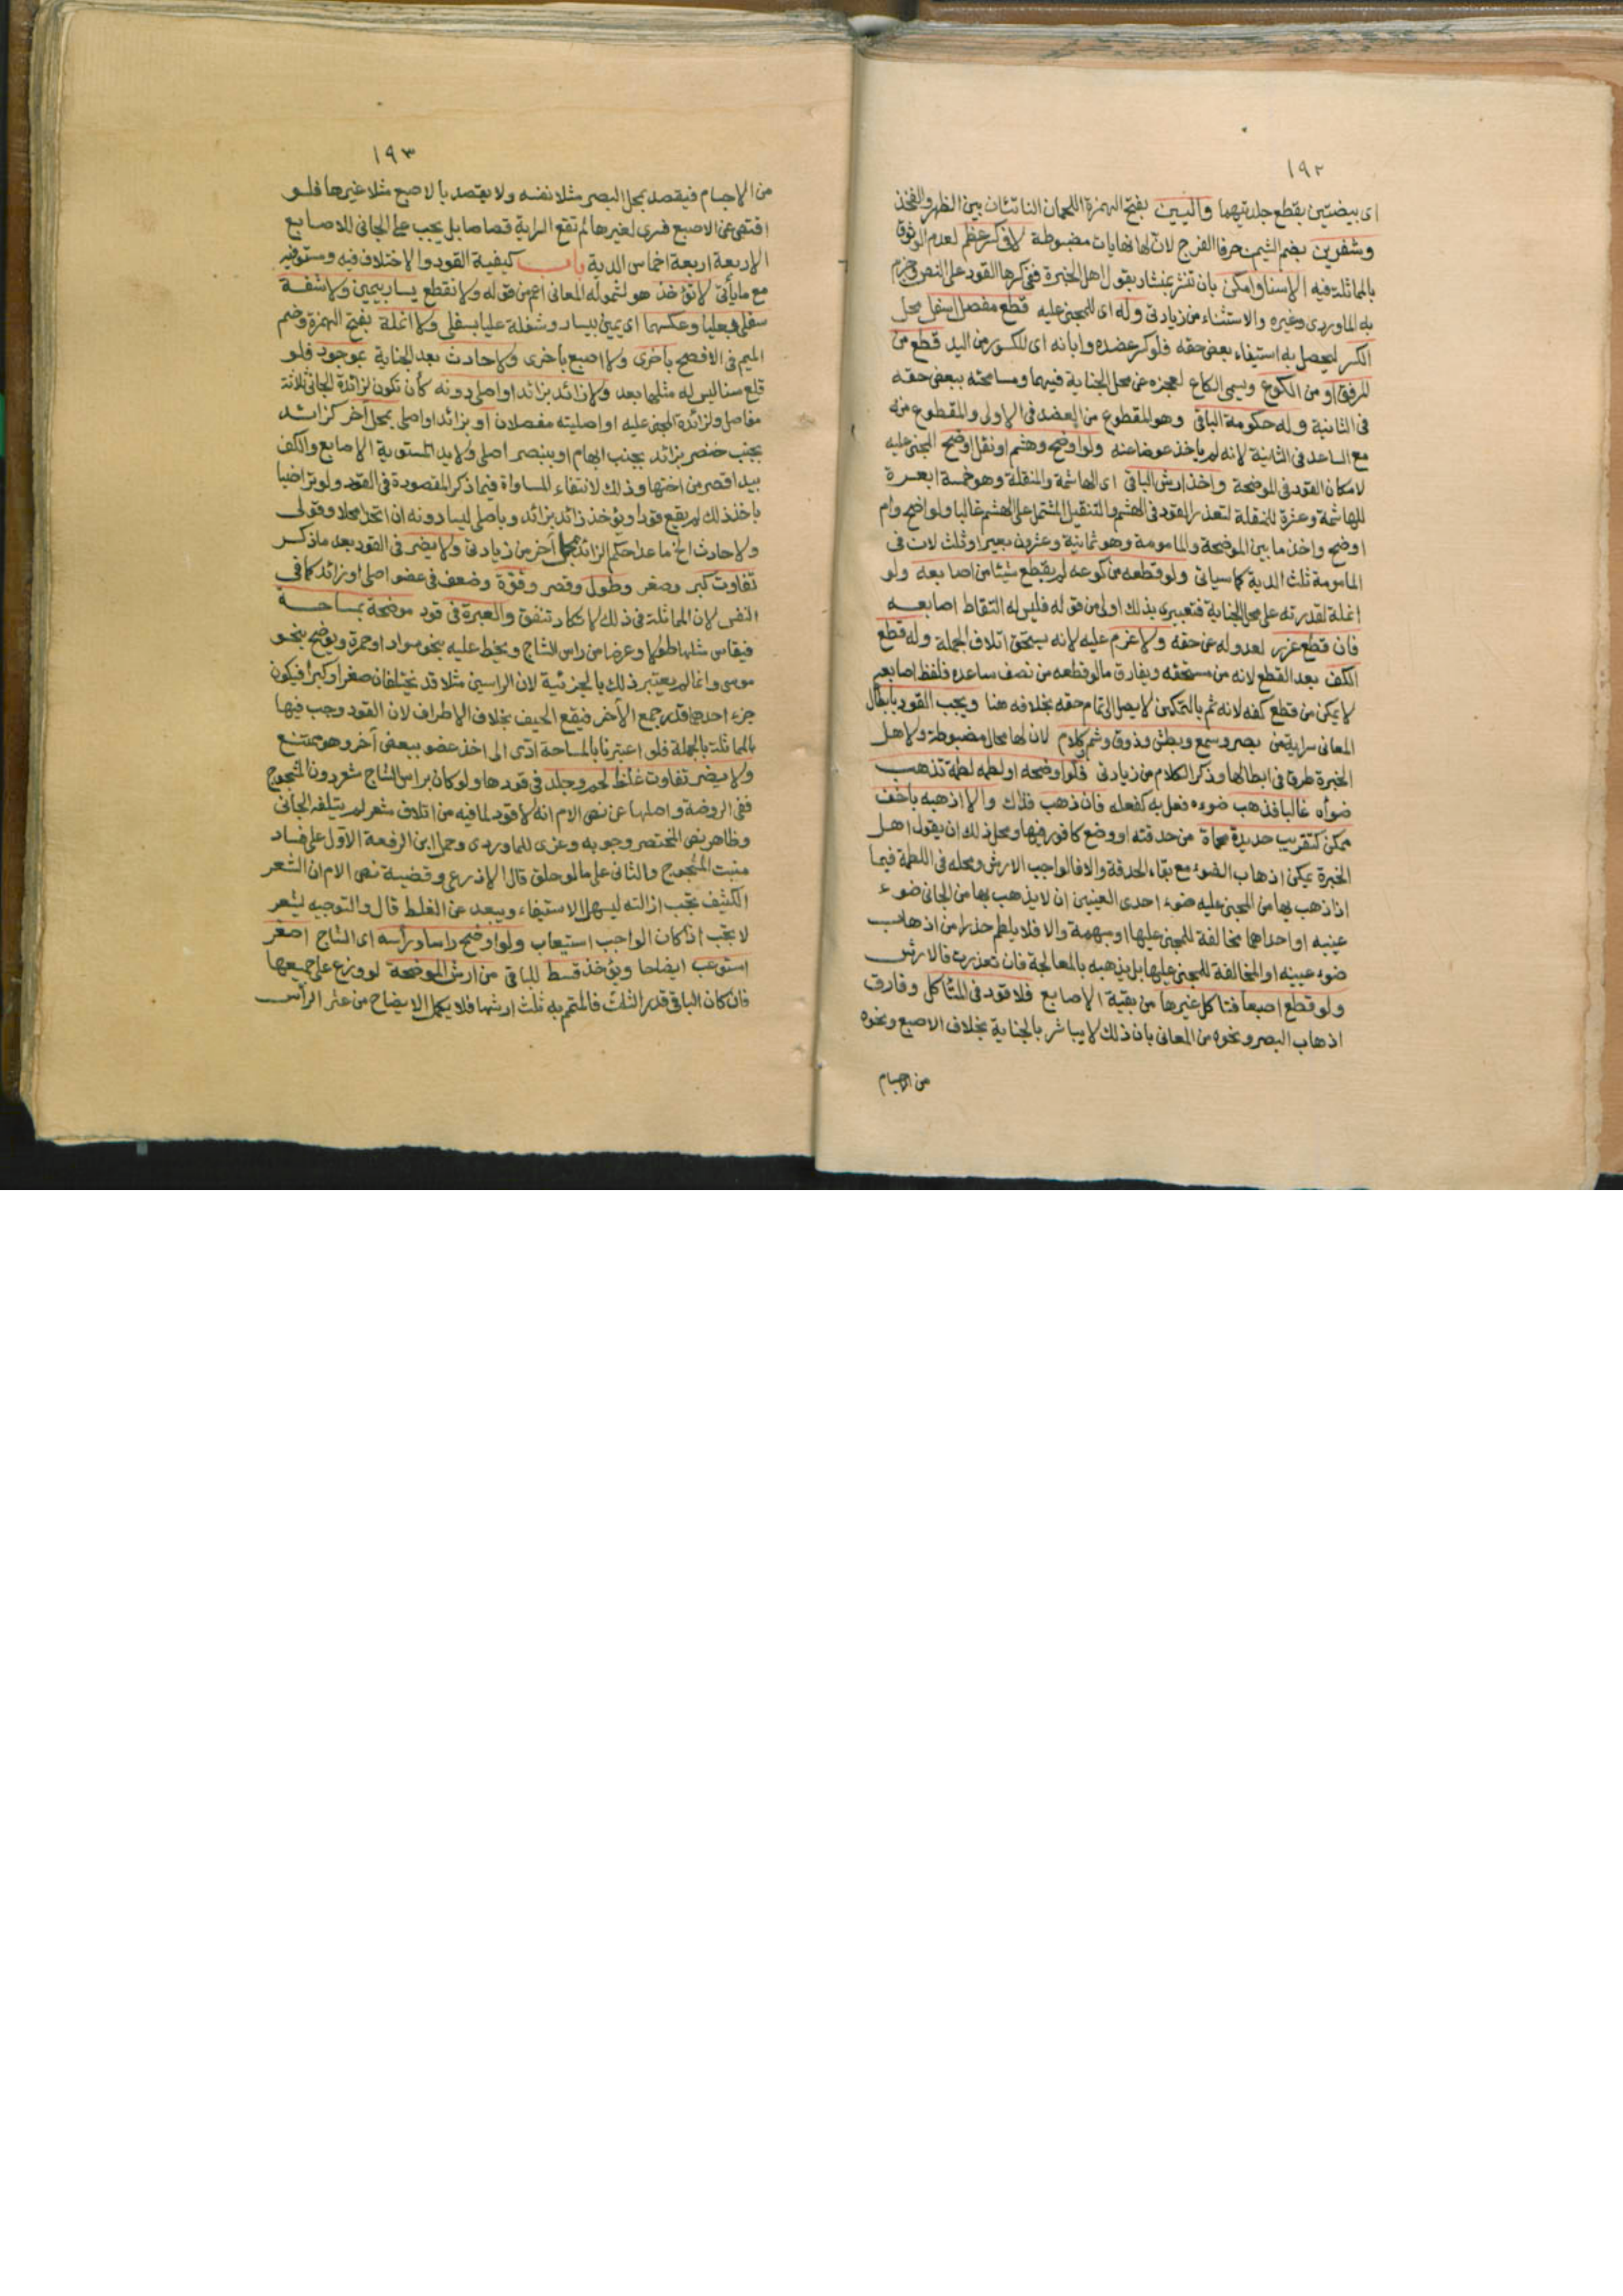 ١٩٢
اى بيضتين بقطع جلدتيهما واليين بفتح الهمزة اللحمان الناتئان بين الظهر والفخذ
وشفرين بضم الشين حرفا الفرج لان لها نهايات مضبوطة لا فى كسر عظم لعدم الوثوق
بالمماثلة فيه الا سنا وامكن بان تنشر بمنشار بقول اهل الخبرة ففى كسرها القود على النص وجزم
به الماوردى وغيره والاستثناء من زيادتى وله اى للمجنى عليه قطع مفصل اسفل محل
الكسر ليحصل به استيفاء بعض حقه فلو كسر عضده وابانه اى المكسور من اليد قطع من
المرفق او من الكوع ويسمى الكاع لعجزه عن محل الجناية فيهما ومسامحته ببعض حقه
فى الثانية وله حكومة الباقى وهو المقطوع من العضد فى الاولى والمقطوع منه
مع الساعد فى الثانية لانه لم ياخذ عوضا عنه ولو اوضح وهشم او نقل اوضح المجنى عليه
لامكان القود فى الموضحة واخذ ارش الباقى اى الهاشمة والمنقلة وهو خمسة ابعرة
للهاشمة وعشرة للمنقلة لتعذر القود فى الهشم والتنقيل المشتمل على الهشم غالبا ولو اوضح وام
اوضح واخذ ما بين الموضحة والمامومة وهو ثمانية وعشرون بعيرا وثلث لان فى
المامومة ثلث الدية كما سياتى ولو قطعه من كوعه لم يقطع شيئا من اصابعه ولو
انملة لقدرته على محل الجناية فتعبيرى بذلك اولى من قوله فليس له التقاط اصابعه
فان قطع عزر لعدوله عن حقه ولا غرم عليه لانه يستحق اتلاف الجملة وله قطع
الكف بعد القطع لانه من مستحقه ويفارق ما لو قطعه من نصف ساعده فلقط اصابعه
لا يمكن من قطع كفه لانه ثم بالتمكين لا يصل الى تمام حقه بخلافه هنا ويجب القود بابطال
المعانى سراية من بصر وسمع وبطش وذوق وشم وكلام لان لها محال مضبوطة ولاهل
الخبرة طرق فى ابطالها وذكر الكلام من زيادتى فلو اوضحه او لطمه لطمة تذهب
ضوأه غالبا فذهب ضوءه فعل به كفعله فان ذهب فذاك والا اذهبه باخف
ممكن كتقريب حديدة محماة من حدقته او وضع كافور فيها ومحل ذلك ان يقول اهل
الخبرة يمكن اذهاب الضوء مع بقاء الحدقة والا فالواجب الارش ومحله فى اللطمة فيما
اذا ذهب بها من المجنى عليه ضوء احدى العينين ان لا يذهب بها من الجانى ضوء
عينيه او احداهما مخالفة للمجنى عليها او مبهمة والا فلا يلطم حذرا من اذهاب
ضوء عينيه او المخالفة للمجنى عليها بل يذهبه بالمعالجة فان تعذرت فالارش
ولو قطع اصبعا فتاكل غيرها من بقية الاصابع فلا قود فى المتاكل وفارق
اذهاب البصر ونحوه من المعانى بان ذلك لا يباشر بالجناية بخلاف الاصبع ونحوه
من الاجسام
١٩٣
من الاجسام فيقصد بمحل البصر مثلا نفسه ولا يقصد بالاصبع مثلا غيرها فلو
اقتص عن الاصبع فسرى لغيرها لم تقع السراية قصاصا بل يجب على الجانى للاصابع
الاربعة اربعة اخماس الدية باب كيفية القود والاختلاف فيه ومستوفيه
مع ما يأتى لا تؤخذ هو لشموله المعانى اعم من قوله ولا تقطع يسار بيمين ولا شفة
سفلى بعليا وعكسهما اى يمين بيسار وشفة عليا بسفلى ولا انملة بفتح الهمزة وضم
الميم فى الافصح بأخرى ولا اصبع بأخرى ولا حادث بعد الجناية بموجود فلو
قلع سنا ليس له مثلها بعد ولا زائد بزائد او اصلى دونه كأن تكون لزائدة الجانى ثلاثة
مفاصل ولزائدة المجنى عليه او اصليته مفصلان او بزائد او اصلى بمحل آخر كزائد
بجنب خنصر بزائد بجنب ابهام او ببنصر اصلى ولا يد مستوية الاصابع والكف
بيد اقصر من اختها وذلك لانتفاء المساواة فيما ذكر المقصودة فى القود ولو تراضيا
باخذ ذلك لم يقع قودا ويؤخذ زائد بزائد وباصلى ليسا دونه ان اتحدا محلا وقولى
ولا حادث الخ ما عدا حكم الزائد بمحل آخر من زيادتى ولا يضر فى القود بعد ما ذكر
تفاوت كبر وصغر وطول وقصر وقوة وضعف فى عضو اصلى او زائد كما فى
النفس لان المماثلة فى ذلك لا تكاد تتفق والعبرة فى قود موضحة بمساحة
فيقاس مثلها طولا وعرضا من راس الشاج ويخط عليه بنحو سواد او حمرة ويوضح بنحو
موسى وانما لم يعتبر ذلك بالجزئية لان الراسين مثلا قد يختلفان صغرا وكبرا فيكون
جزء احدهما قدر جميع الآخر فيقع الحيف بخلاف الاطراف لان القود وجب فيها
بالمماثلة بالجملة فلو اعتبرنا بالمساحة ادى الى اخذ عضو ببعض آخر وهو ممتنع
ولا يضر تفاوت غلظ لحم وجلد فى قودها ولو كان براس الشاج شعر دون المشجوج
ففى الروضة واصلها عن نص الام انه لا قود لما فيه من اتلاف شعر لم يتلفه الجانى
وظاهر نص المختصر وجوبه وعزى للماوردى وحمل ابن الرفعة الاول على فساد
منبت المشجوج والثانى على ما لو حلق قال الاذرعى وقضية نص الام ان الشعر
الكثيف تجب ازالته ليسهل الاستيفاء ويبعد عن الغلط قال والتوجيه يشعر
لا تجب اذا كان الواجب استيعاب ولو اوضح راسا ورأسه اى الشاج اصغر
استوعب ايضاحا ويؤخذ قسط للباقى من ارش الموضحة لو وزع على جميعها
فان كان الباقى قدر الثلث فالمتمم به ثلث ارشها فلا يكمل الايضاح من غير الرأس